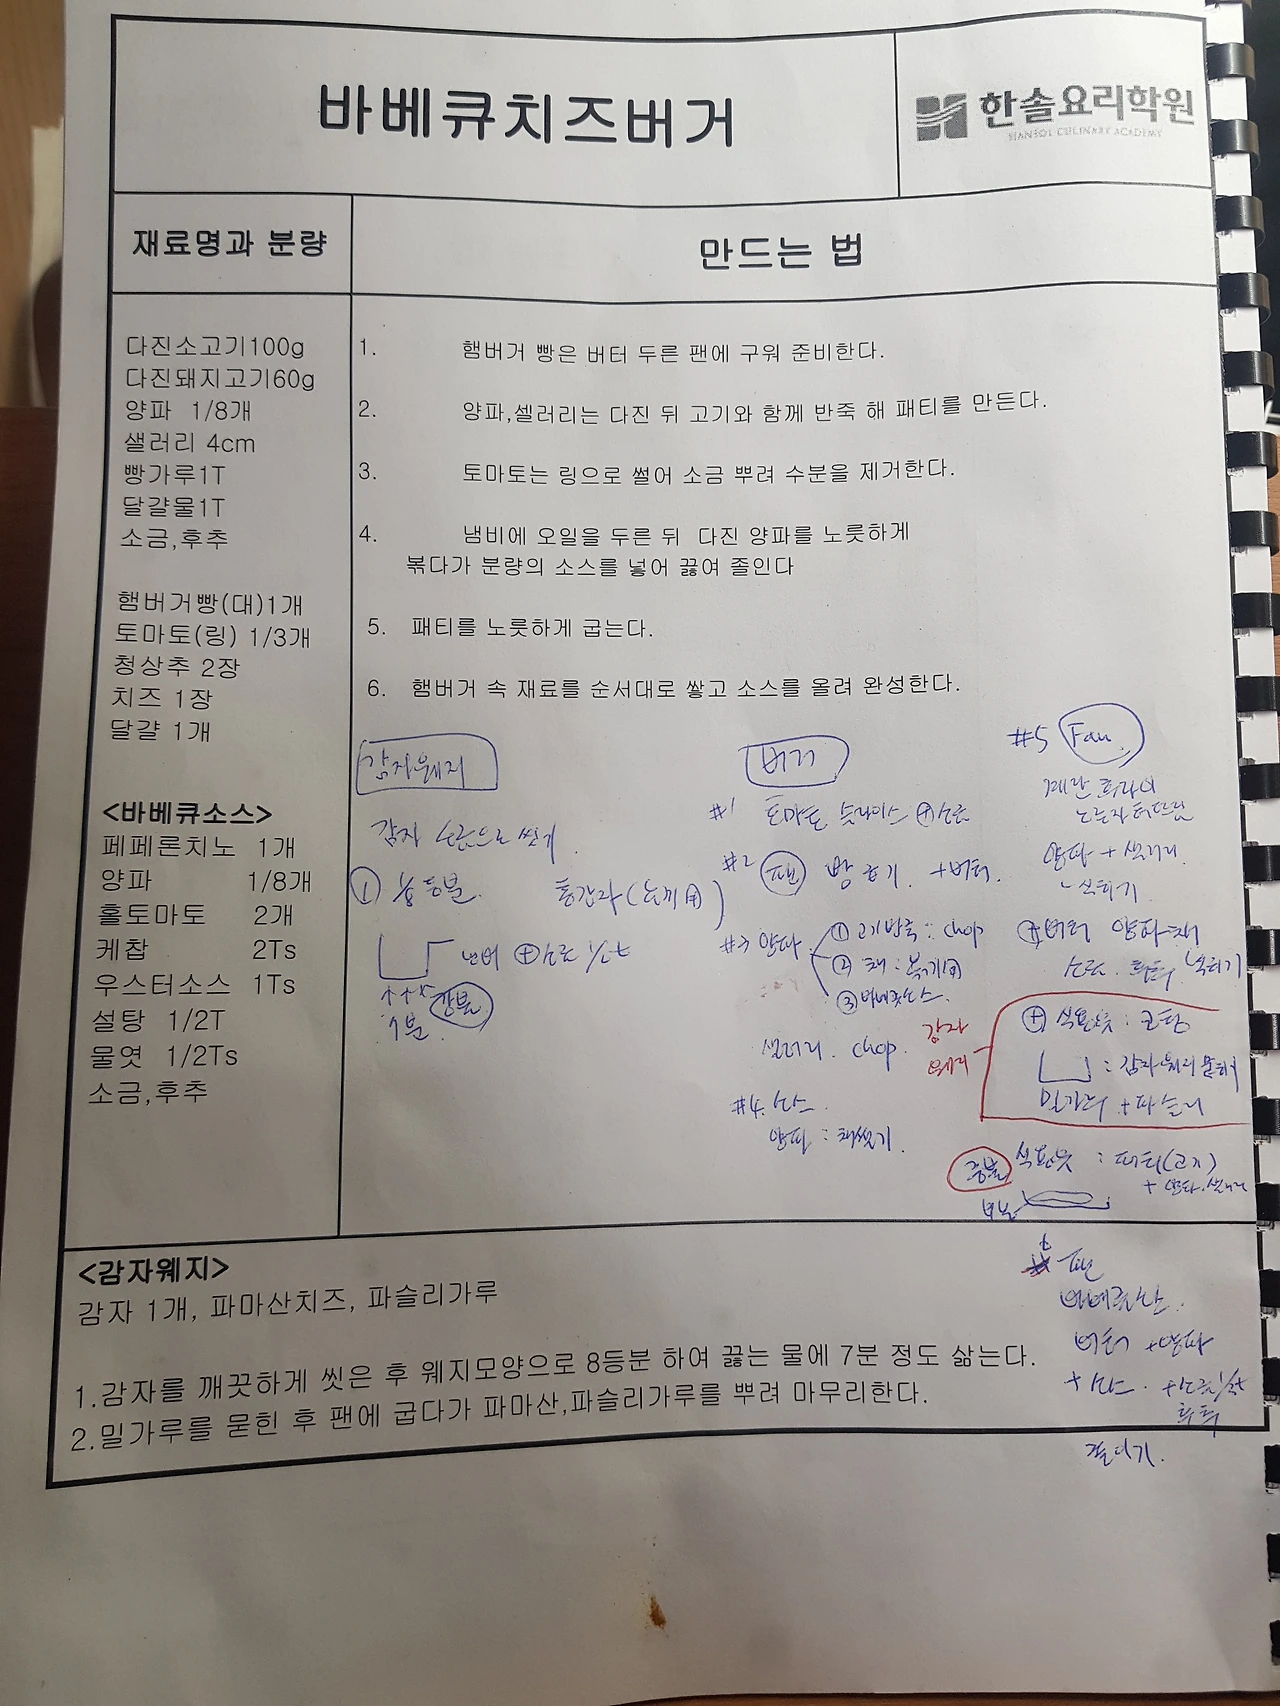 바베큐치즈버거
한솔요리학원
HANSOL CULINARY ACADEMY
재료명과 분량
만드는 법
다진소고기100g
다진돼지고기60g
양파 1/8개
샐러리 4cm
빵가루1T
달걀물1T
소금,후추
햄버거빵(대)1개
토마토(링) 1/3개
청상추 2장
치즈 1장
달걀 1개
<바베큐소스>
페페론치노 1개
양파 1/8개
홀토마토 2개
케찹 2Ts
우스터소스 1Ts
설탕 1/2T
물엿 1/2Ts
소금,후추
1. 햄버거 빵은 버터 두른 팬에 구워 준비한다.
2. 양파,셀러리는 다진 뒤 고기와 함께 반죽 해 패티를 만든다.
3. 토마토는 링으로 썰어 소금 뿌려 수분을 제거한다.
4. 냄비에 오일을 두른 뒤 다진 양파를 노릇하게
볶다가 분량의 소스를 넣어 끓여 졸인다
5. 패티를 노릇하게 굽는다.
6. 햄버거 속 재료를 순서대로 쌓고 소스를 올려 완성한다.
감자웨지
감자 소금으로 씻기
① 8등분. 통감자
냄비 ⊕ 소금 1/2t
강불
7분
버거
#1 토마토 슬라이스 ⊕ 소금
#2 팬 빵 굽기 +버터.
#3 양파 ① 고기반죽 : chop
② 채 : 볶기用
③ 바베큐소스.
샐러리. chop.
#4. 소스.
양파 : 채썰기.
#5 Fan
계란 후라이
노른자 터트림
양파 + 샐러리
식히기
⊕ 버터 양파채
소금. 후추 볶기
감자
웨지
⊕ 식용유 : 코팅
: 감자웨지
밀가루 + 파슬리
중불 식용유 : 패티(고기)
+ 양파.샐러리
팬
바베큐소스.
버터 +양파
+ 소스. +소금
후추
졸이기.
<감자웨지>
감자 1개, 파마산치즈, 파슬리가루
1.감자를 깨끗하게 씻은 후 웨지모양으로 8등분 하여 끓는 물에 7분 정도 삶는다.
2.밀가루를 묻힌 후 팬에 굽다가 파마산,파슬리가루를 뿌려 마무리한다.